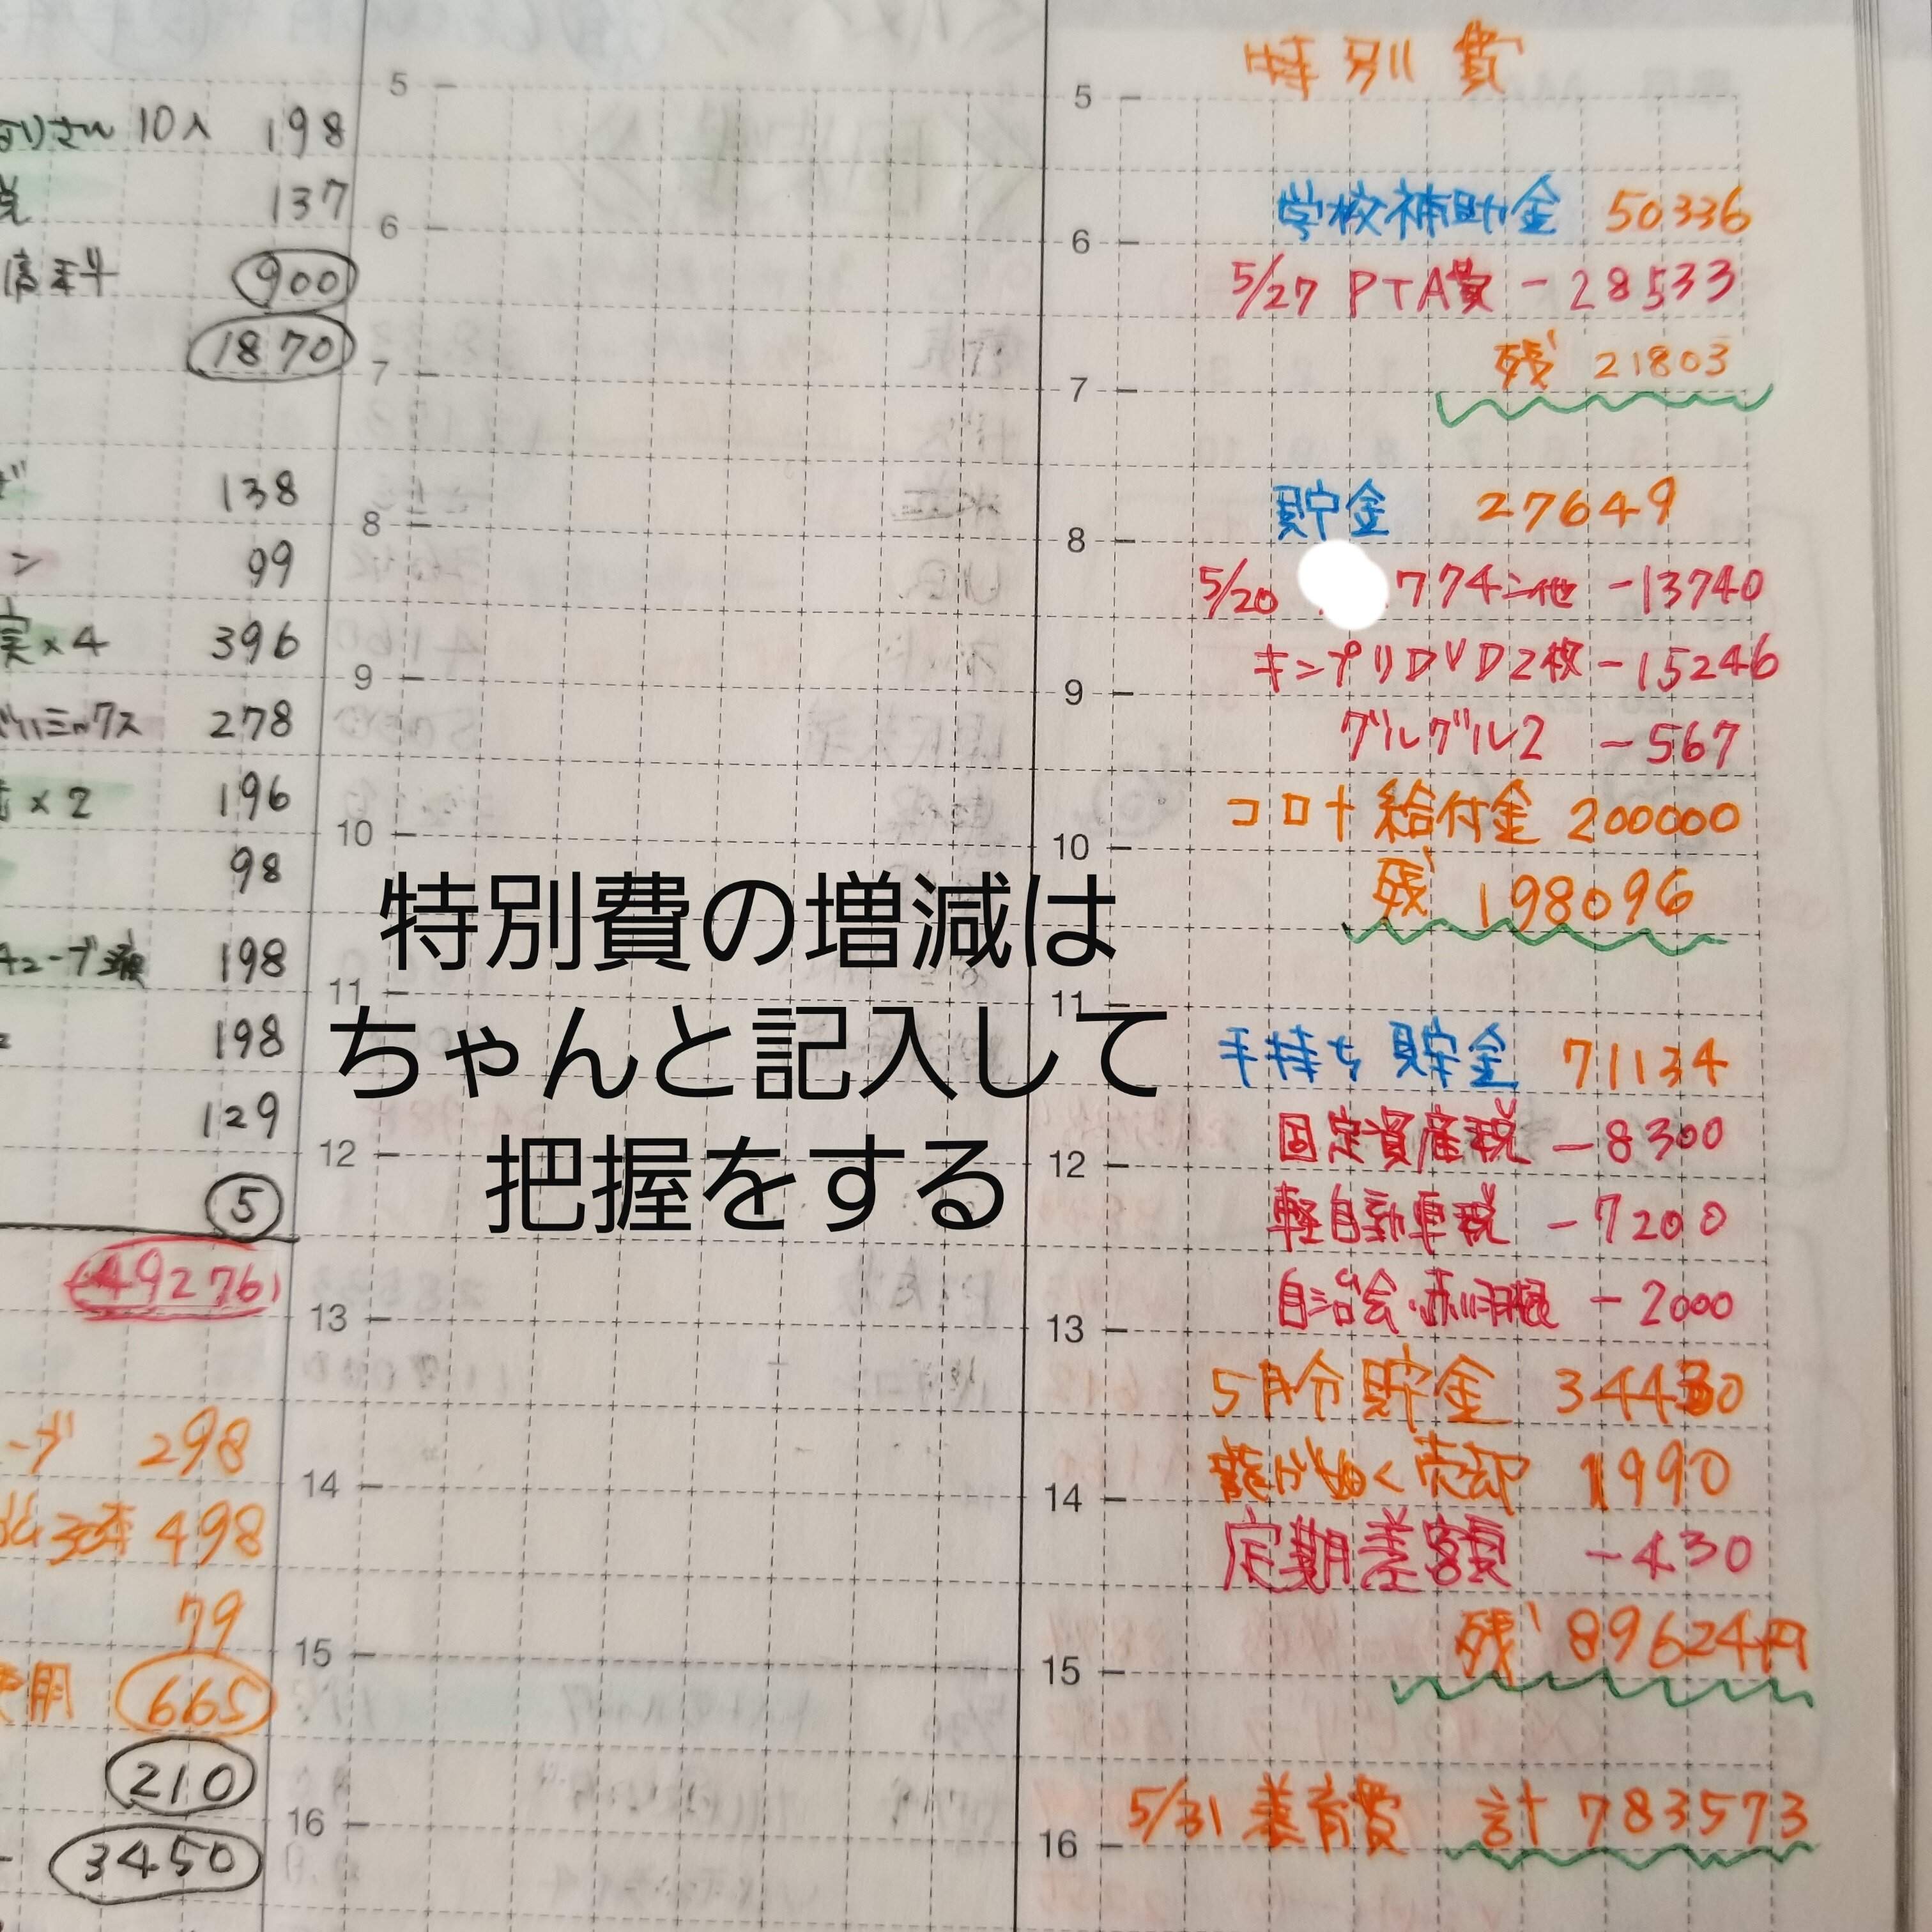 さん 10入 198
税 137
信料 900
1870
138
ン 99
実×4 396
ミックス 278
×2 196
98
チューブ 198
198
129
5
49276
298
30本 498
79
費用 665
210
3450
5
6
7
8
9
10
11
12
13
14
15
16
特別費の増減は
ちゃんと記入して
把握をする
特別費
5
学校補助金 50336
6
5/27 PTA費 -28533
残 21803
7
貯金 27649
8
5/20 他 -13740
キンプリDVD2枚 -15246
9
グルグル2 -567
コロナ給付金 200000
10
残 198096
11
手持ち貯金 71134
固定資産税 -8300
12
軽自動車税 -7200
自治会・赤羽根 -2000
13
5月分貯金 34430
龍が如く売却 1990
14
定期差額 -430
残 89624円
15
5/31 養育費 計 783573
16